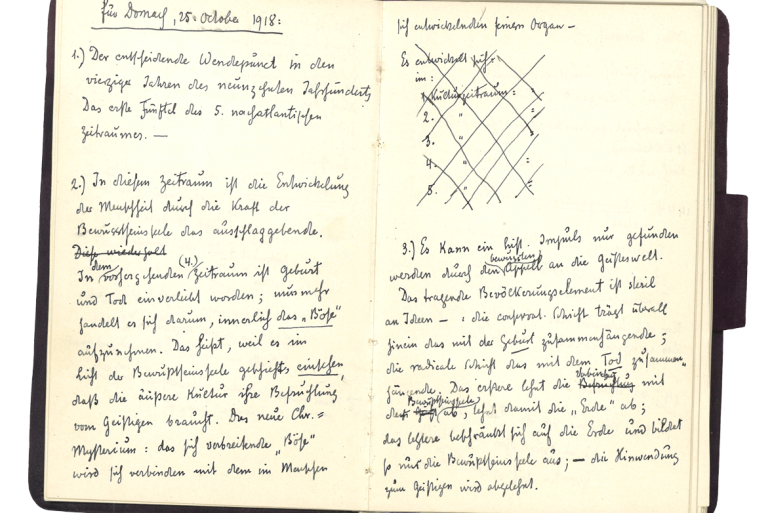 für Dornach, 25. October 1918:
1.) Der entscheidende Wendepunct in den
vierziger Jahren des neunzehnten Jahrhunderts
Das erste Fünftel des 5. nachatlantischen
Zeitraumes. —
2.) In diesem Zeitraum ist die Entwickelung
der Menschheit durch die Kraft der
Bewusstseinsseele das ausschlaggebende.
Diese wiederholt
In dem vorhergehenden (4.) Zeitraum ist Geburt
und Tod einverleibt worden; nunmehr
handelt es sich darum, innerlich das „Böse"
aufzunehmen. Das heisst, weil es im
Licht der Bewußtseinsseele geschieht, einsehen,
daß die äußere Kultur ihre Befruchtung
vom Geistigen braucht. Das neue Chr.=
Mysterium: das sich verbreitende „Böse"
wird sich verbinden mit dem im Menschen
sich entwickelnden feinern Organ —
Es entwickelt sich:
im:
1. Kulturzeitraum:
2. "
3. "
4. "
5. "
3.) Es kann ein hist. Impuls nur gefunden
werden durch den bewussten Appell an die Geisteswelt.
Das tragende Bevölkerungselement ist steril
an Ideen — : die Schicht trägt überall
hinein das mit der Geburt zusammenhängende;
die radicale Schicht das mit dem Tod zusammen-
hängende. Das erstere lehnt die Befruchtung mit
der Bewußtseinsseele ab, lehnt damit die „Erde" ab;
das letztere beschränkt sich auf die Erde und bildet
so nur die Bewußtseinsseele aus; — die Hinwendung
zum Geistigen wird abgelehnt.